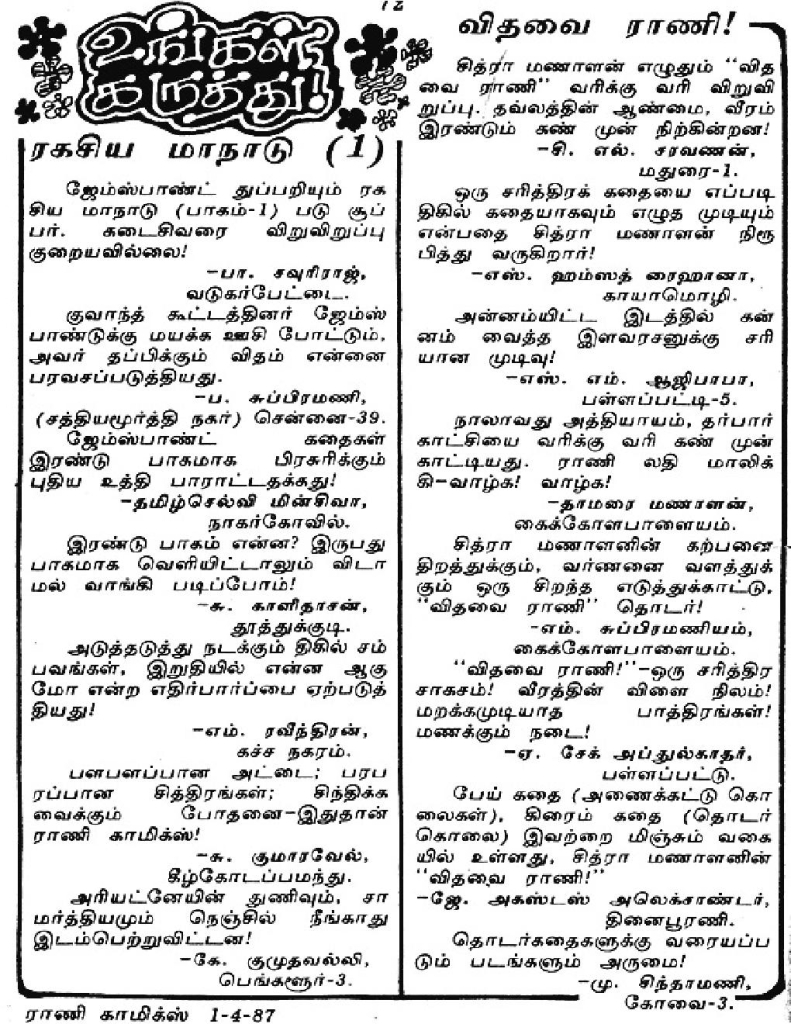 72
உங்கள்
கருத்து!
ரகசிய மாநாடு (1)
ஜேம்ஸ்பாண்ட் துப்பறியும் ரக
சிய மாநாடு (பாகம்-1) படு சூப்
பர். கடைசிவரை விறுவிறுப்பு
குறையவில்லை!
-பா. சவுரிராஜ்,
வடுகர்பேட்டை.
குவாந்த் கூட்டத்தினர் ஜேம்ஸ்
பாண்டுக்கு மயக்க ஊசி போட்டும்,
அவர் தப்பிக்கும் விதம் என்னை
பரவசப்படுத்தியது.
-ப. சுப்பிரமணி,
(சத்தியமூர்த்தி நகர்) சென்னை-39.
ஜேம்ஸ்பாண்ட் கதைகள்
இரண்டு பாகமாக பிரசுரிக்கும்
புதிய உத்தி பாராட்டதக்கது!
-தமிழ்செல்வி மின்சிவா,
நாகர்கோவில்.
இரண்டு பாகம் என்ன? இருபது
பாகமாக வெளியிட்டாலும் விடா
மல் வாங்கி படிப்போம்!
-சு. காளிதாசன்,
தூத்துக்குடி.
அடுத்தடுத்து நடக்கும் திகில் சம்
பவங்கள், இறுதியில் என்ன ஆகு
மோ என்ற எதிர்பார்ப்பை ஏற்படுத்
தியது!
-எம். ரவீந்திரன்,
கச்ச நகரம்.
பளபளப்பான அட்டை; பரப
ரப்பான சித்திரங்கள்; சிந்திக்க
வைக்கும் போதனை-இதுதான்
ராணி காமிக்ஸ்!
-சு. குமாரவேல்,
கீழ்கோடப்பமந்து.
அரியட்னேயின் துணிவும், சா
மர்த்தியமும் நெஞ்சில் நீங்காது
இடம்பெற்றுவிட்டன!
-கே. குமுதவல்லி,
பெங்களூர்-3.
விதவை ராணி!
சித்ரா மணாளன் எழுதும் "வித
வை ராணி" வரிக்கு வரி விறுவி
றுப்பு. தவ்லத்தின் ஆண்மை, வீரம்
இரண்டும் கண் முன் நிற்கின்றன!
-சி. எல். சரவணன்,
மதுரை-1.
ஒரு சரித்திரக் கதையை எப்படி
திகில் கதையாகவும் எழுத முடியும்
என்பதை சித்ரா மணாளன் நிரூ
பித்து வருகிறார்!
-எஸ். ஹம்ஸத் ரைஹானா,
காயாமொழி.
அன்னம்யிட்ட இடத்தில் கன்
னம் வைத்த இளவரசனுக்கு சரி
யான முடிவு!
-எஸ். எம். ஆஜிபாபா,
பள்ளப்பட்டி-5.
நாலாவது அத்தியாயம், தர்பார்
காட்சியை வரிக்கு வரி கண் முன்
காட்டியது. ராணி லதி மாலிக்
கி-வாழ்க! வாழ்க!
-தாமரை மணாளன்,
கைக்கோளபாளையம்.
சித்ரா மணாளனின் கற்பனை
திறத்துக்கும், வர்ணனை வளத்துக்
கும் ஒரு சிறந்த எடுத்துக்காட்டு,
"விதவை ராணி" தொடர்!
-எம். சுப்பிரமணியம்,
கைக்கோளபாளையம்.
"விதவை ராணி!"-ஒரு சரித்திர
சாகசம்! வீரத்தின் விளை நிலம்!
மறக்கமுடியாத பாத்திரங்கள்!
மணக்கும் நடை!
-ஏ. சேக் அப்துல்காதர்,
பள்ளப்பட்டு.
பேய் கதை (அணைக்கட்டு கொ
லைகள்), கிரைம் கதை (தொடர்
கொலை) இவற்றை மிஞ்சும் வகை
யில் உள்ளது, சித்ரா மணாளனின்
"விதவை ராணி!"
-ஜே. அகஸ்டஸ் அலெக்சாண்டர்,
தினைபூரணி.
தொடர்கதைகளுக்கு வரையப்ப
டும் படங்களும் அருமை!
-மு. சிந்தாமணி,
கோவை-3.
ராணி காமிக்ஸ் 1-4-87